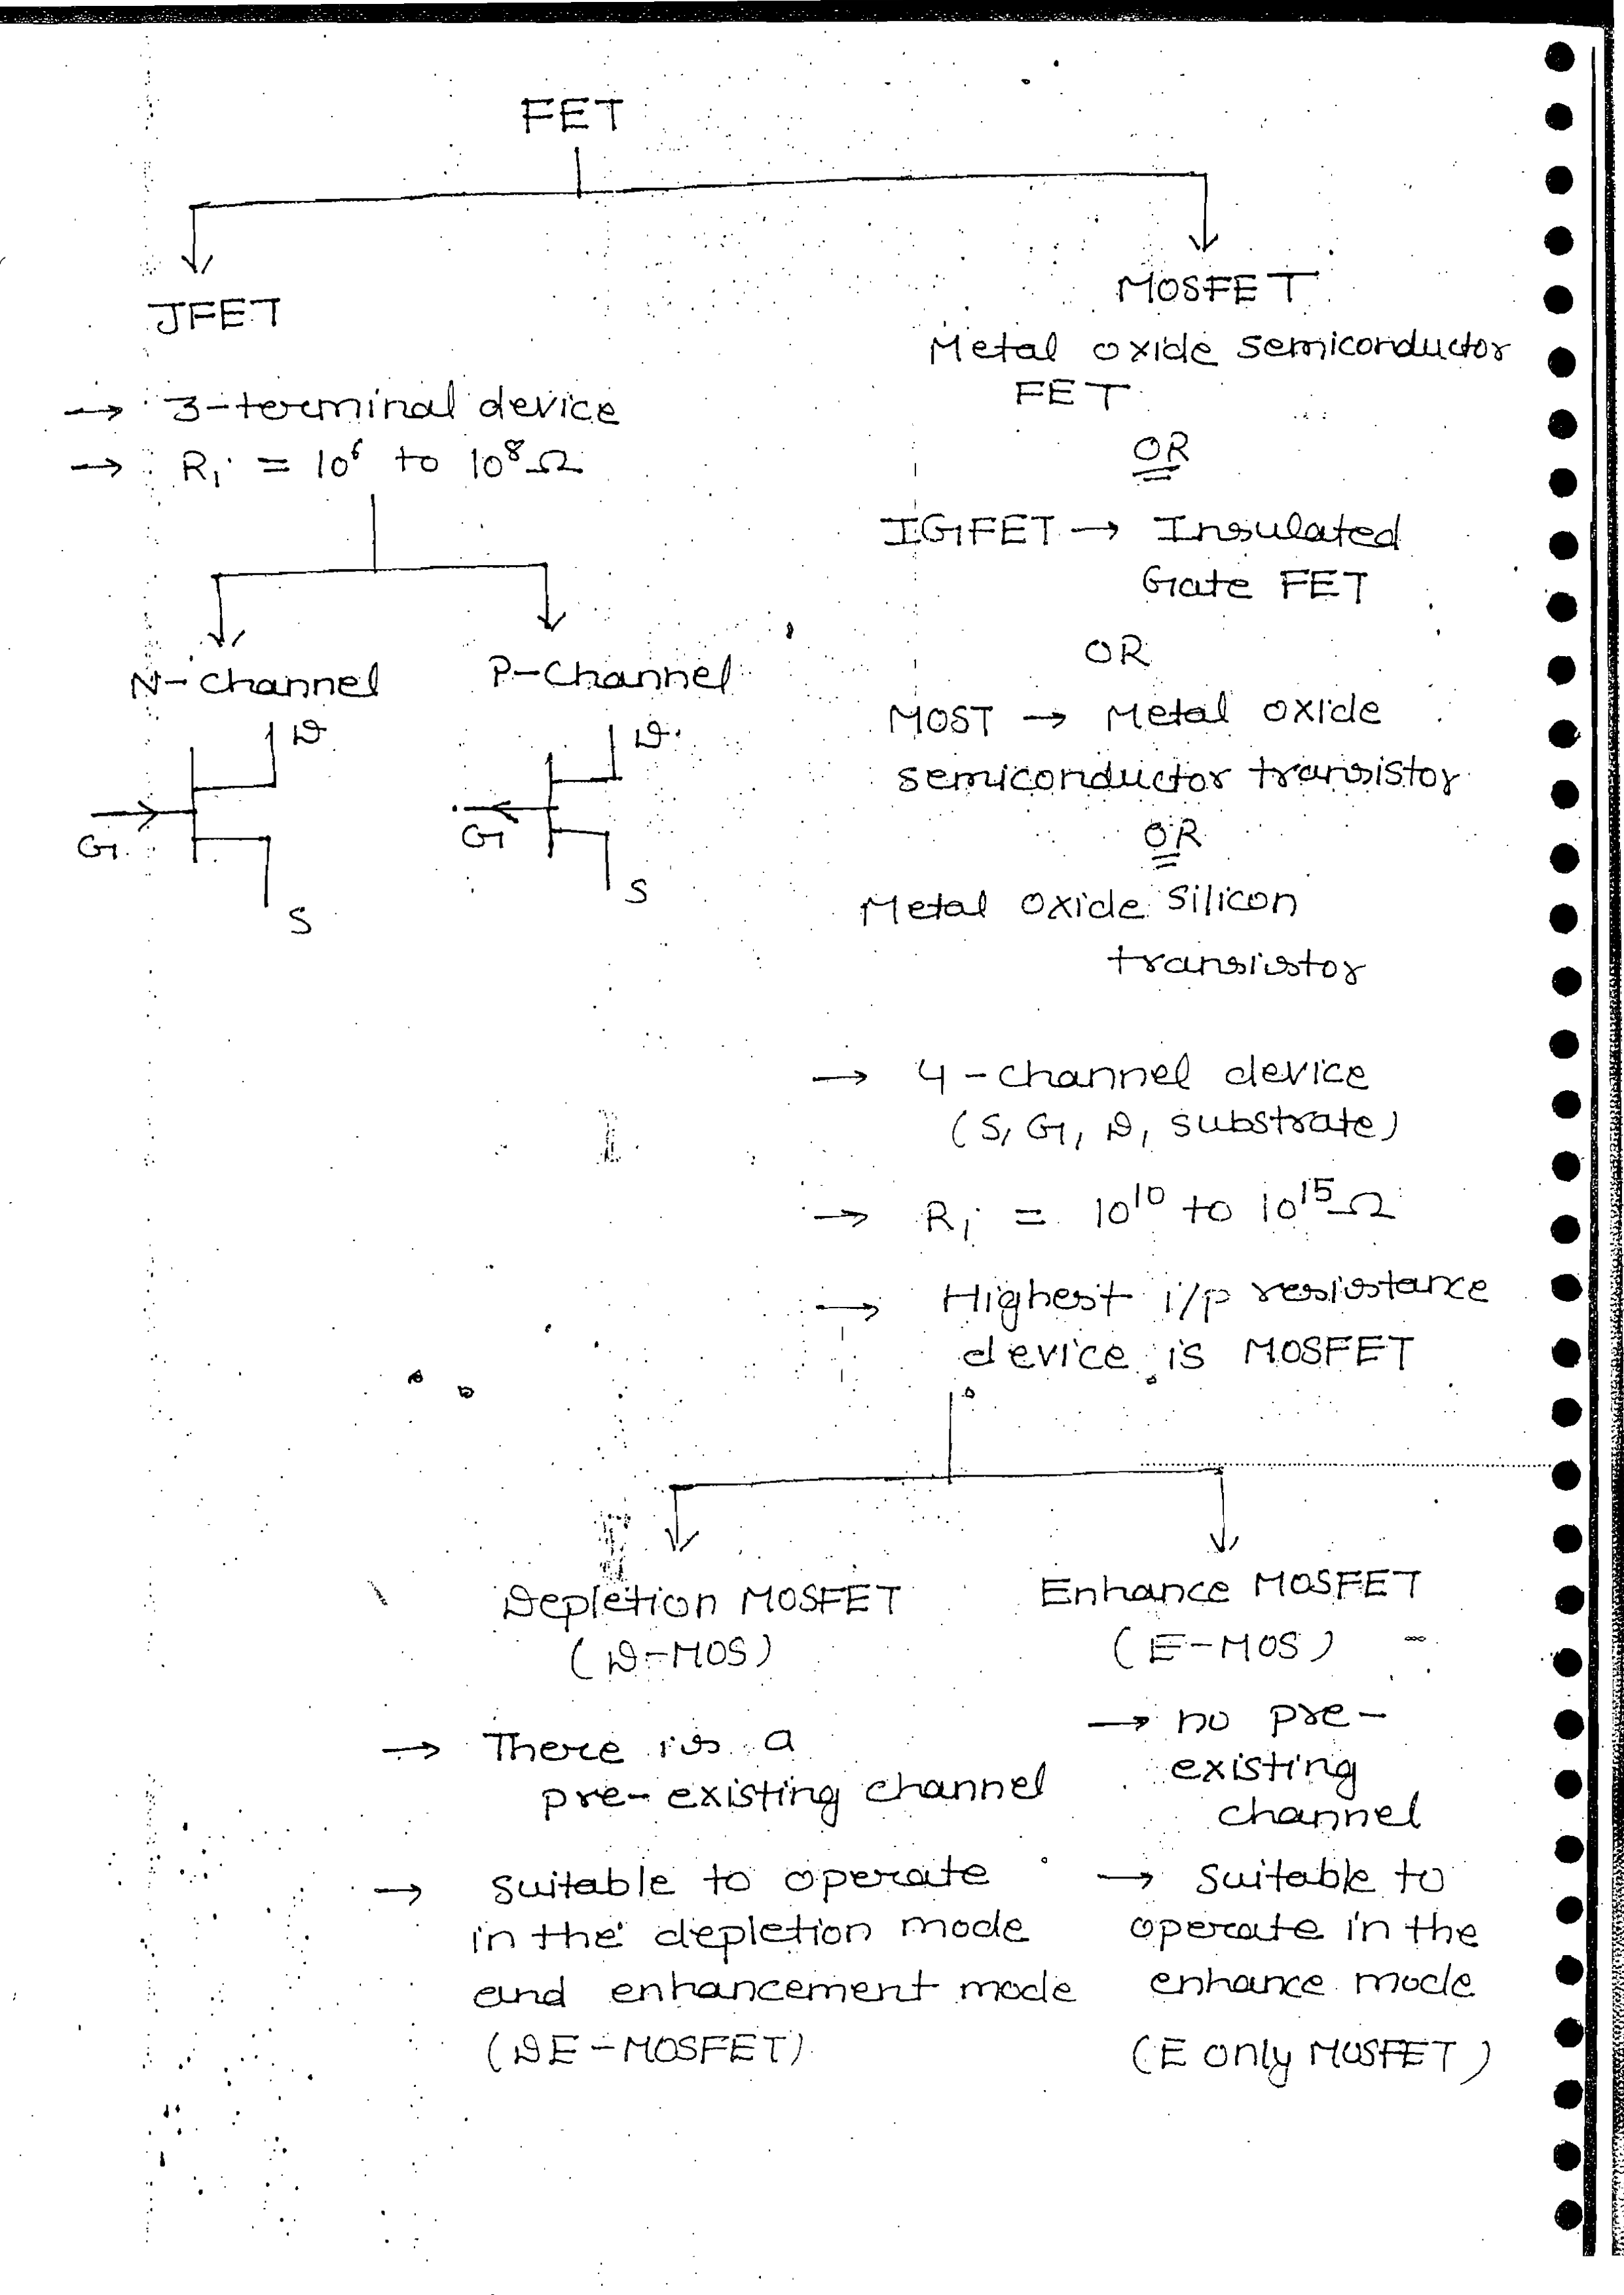 FET
JFET
→ 3-terminal device
→ Ri = 10⁶ to 10⁸ Ω
N-channel
P-channel
D
G
S
D
G
S
MOSFET
Metal oxide semiconductor
FET
OR
IGFET → Insulated
Gate FET
OR
MOST → Metal oxide
semiconductor transistor
OR
Metal oxide silicon
transistor
→ 4-channel device
(S, G, D, substrate)
→ Ri = 10¹⁰ to 10¹⁵ Ω
→ Highest i/p resistance
device is MOSFET
Depletion MOSFET
(D-MOS)
→ There is a
pre-existing channel
→ suitable to operate
in the depletion mode
and enhancement mode
(DE-MOSFET)
Enhance MOSFET
(E-MOS)
→ no pre-
existing
channel
→ suitable to
operate in the
enhance mode
(E only MOSFET)